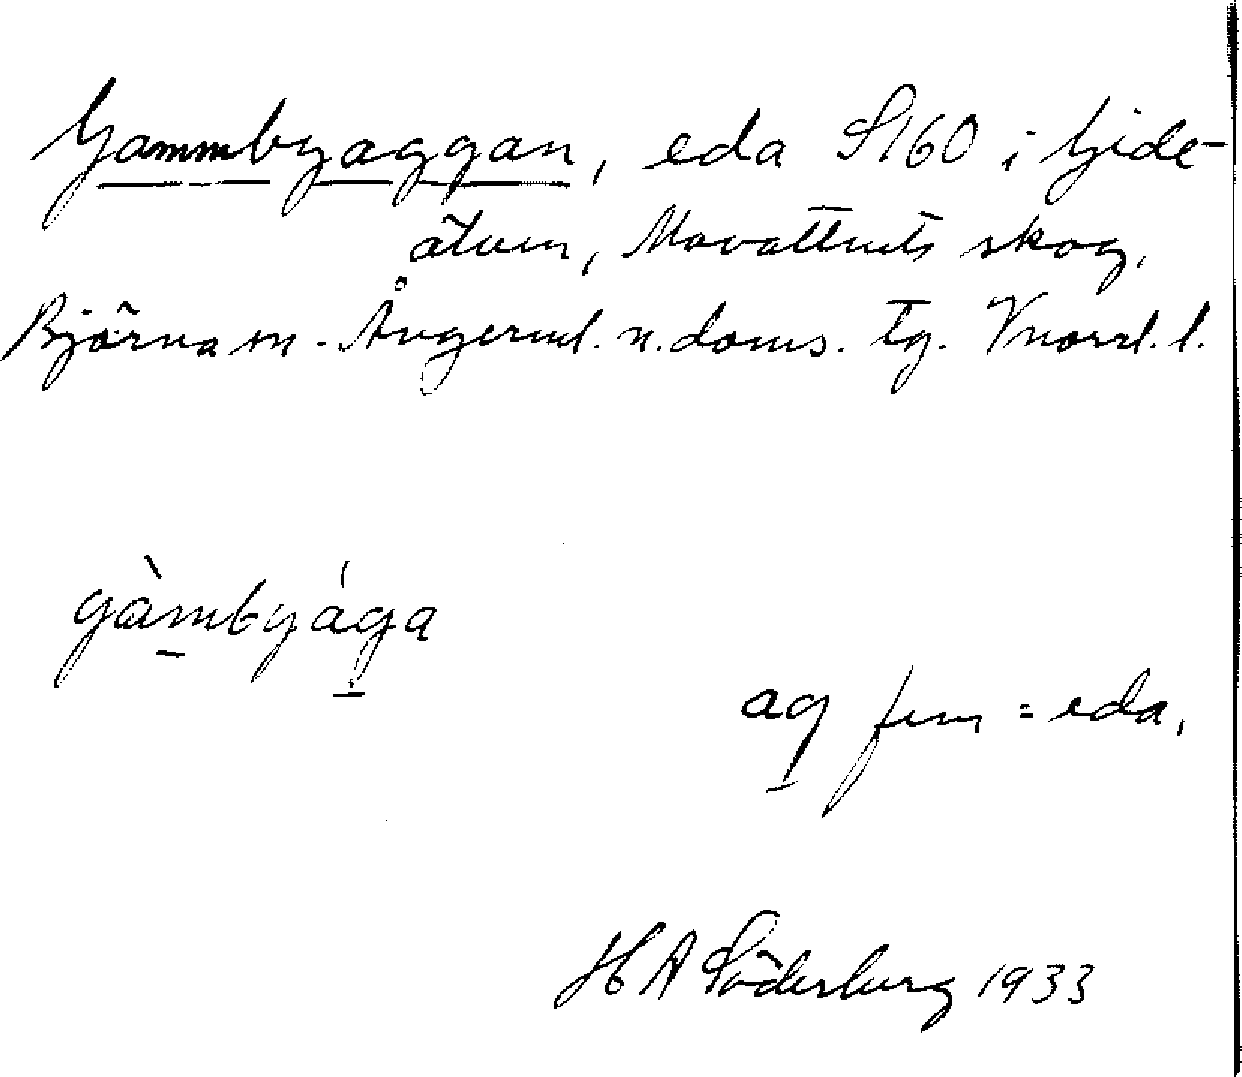 Gammbyaggan, eda S160 i Gide-
älven, Movattnets skog,
Björna sn. Ångerml. n. doms. tg. Vnorrl. l.
gàmbyága
ag fem = eda,
H A Söderberg 1933